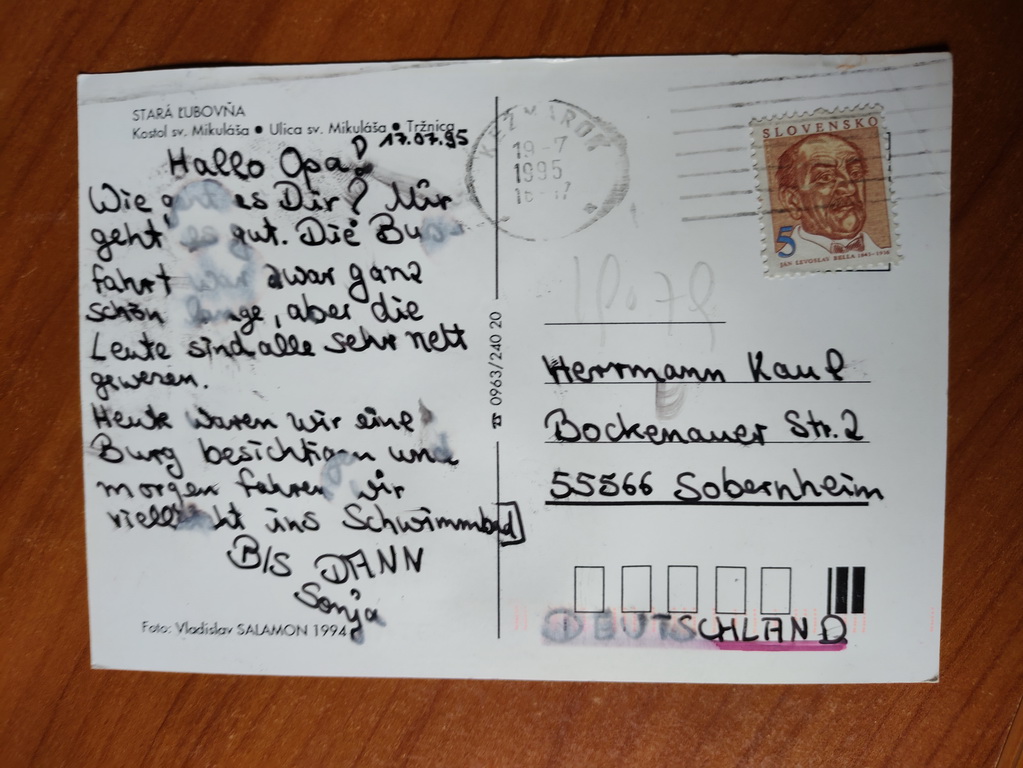 STARÁ ĽUBOVŇA
Kostol sv. Mikuláša ● Ulica sv. Mikuláša ● Tržnica
17.07.95
Hallo Opa!
Wie geht es Dir? Mir
geht es gut. Die Bus
fahrt war zwar ganz
schön lange, aber die
Leute sind alle sehr nett
gewesen.
Heute waren wir eine
Burg besichtigen und
morgen fahren wir
vielleicht ins Schwimmbad
B/S DANN
Sonja
Foto: Vladislav SALAMON 1994
☎ 0963/240 20
KEŽMAROK
19-7
1995
SLOVENSKO
5
JÁN LEVOSLAV BELLA 1843-1936
Herrmann Kaul
Bockenauer Str. 2
55566 Sobernheim
DEUTSCHLAND